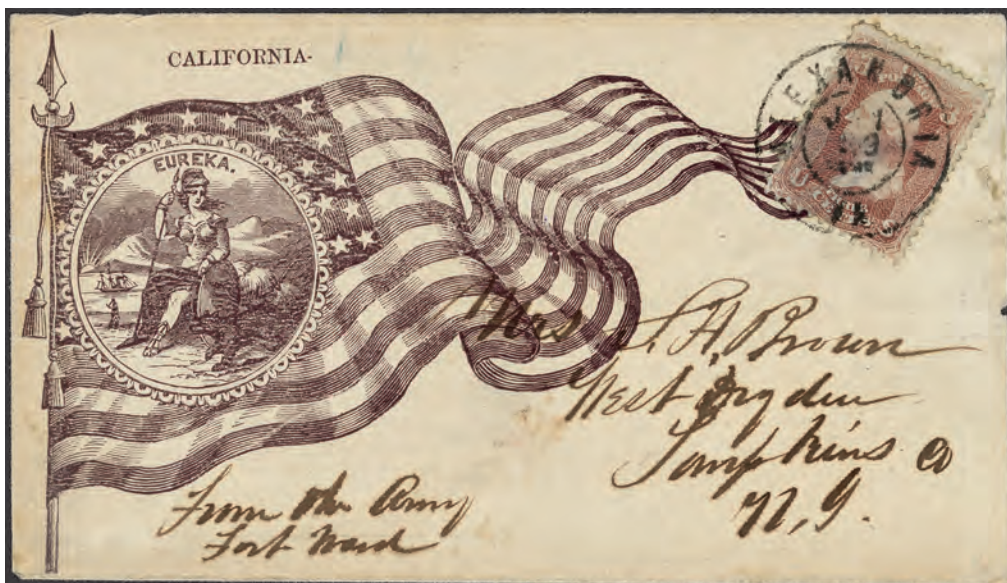 CALIFORNIA.
EUREKA.
ALEXANDRIA
VA.
Mrs S. A. Brown
West Dryden
Tompkins Co
N, Y.
From the Army
Fort Ward